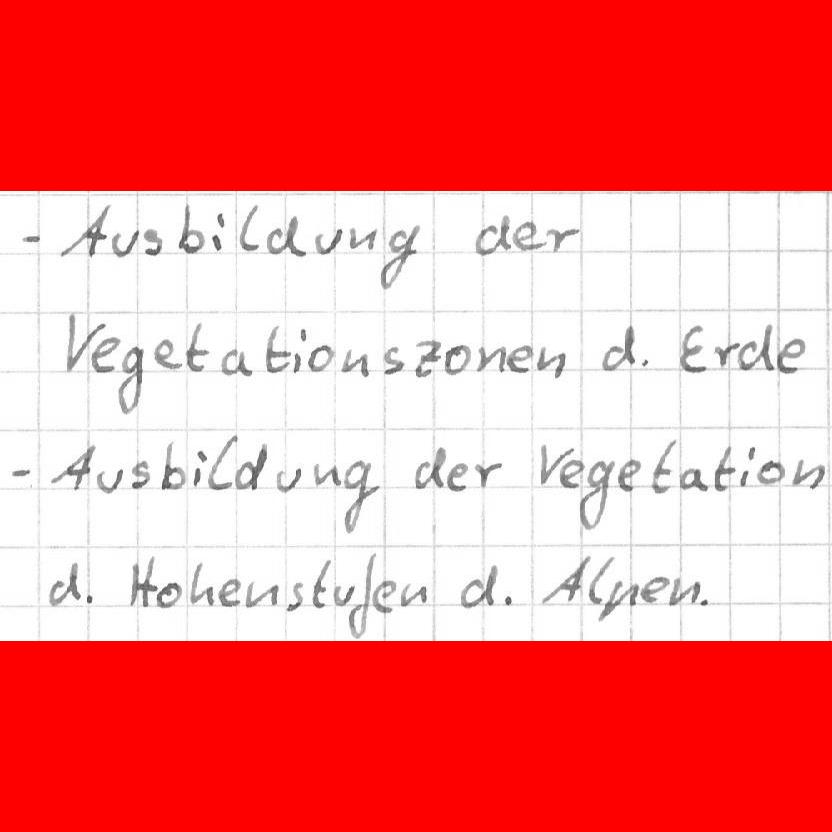 - Ausbildung der
Vegetationszonen d. Erde
- Ausbildung der Vegetation
d. Hohenstufen d. Alpen.